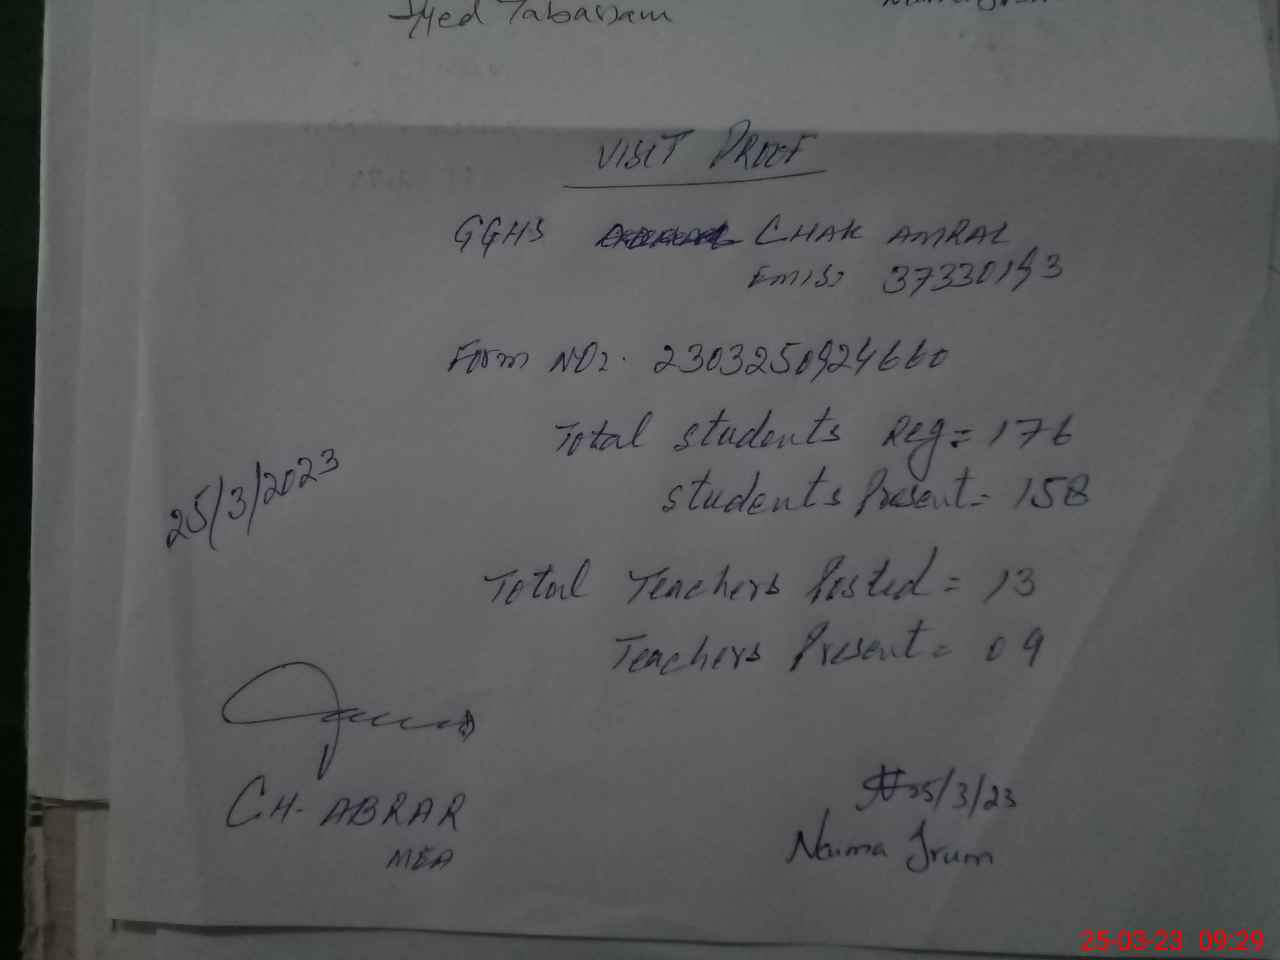 Syed Tabassam
VISIT PROOF
GGHS CHAK AMRAL
EMIS: 37330193
Form NO:. 2303250924660
Total students Reg = 176
students Present = 158
25/3/2023
Total Teachers Posted = 13
Teachers Present = 09
CH- ABRAR
MEA
25/3/23
Nauma Irum
25-03-23 09:29